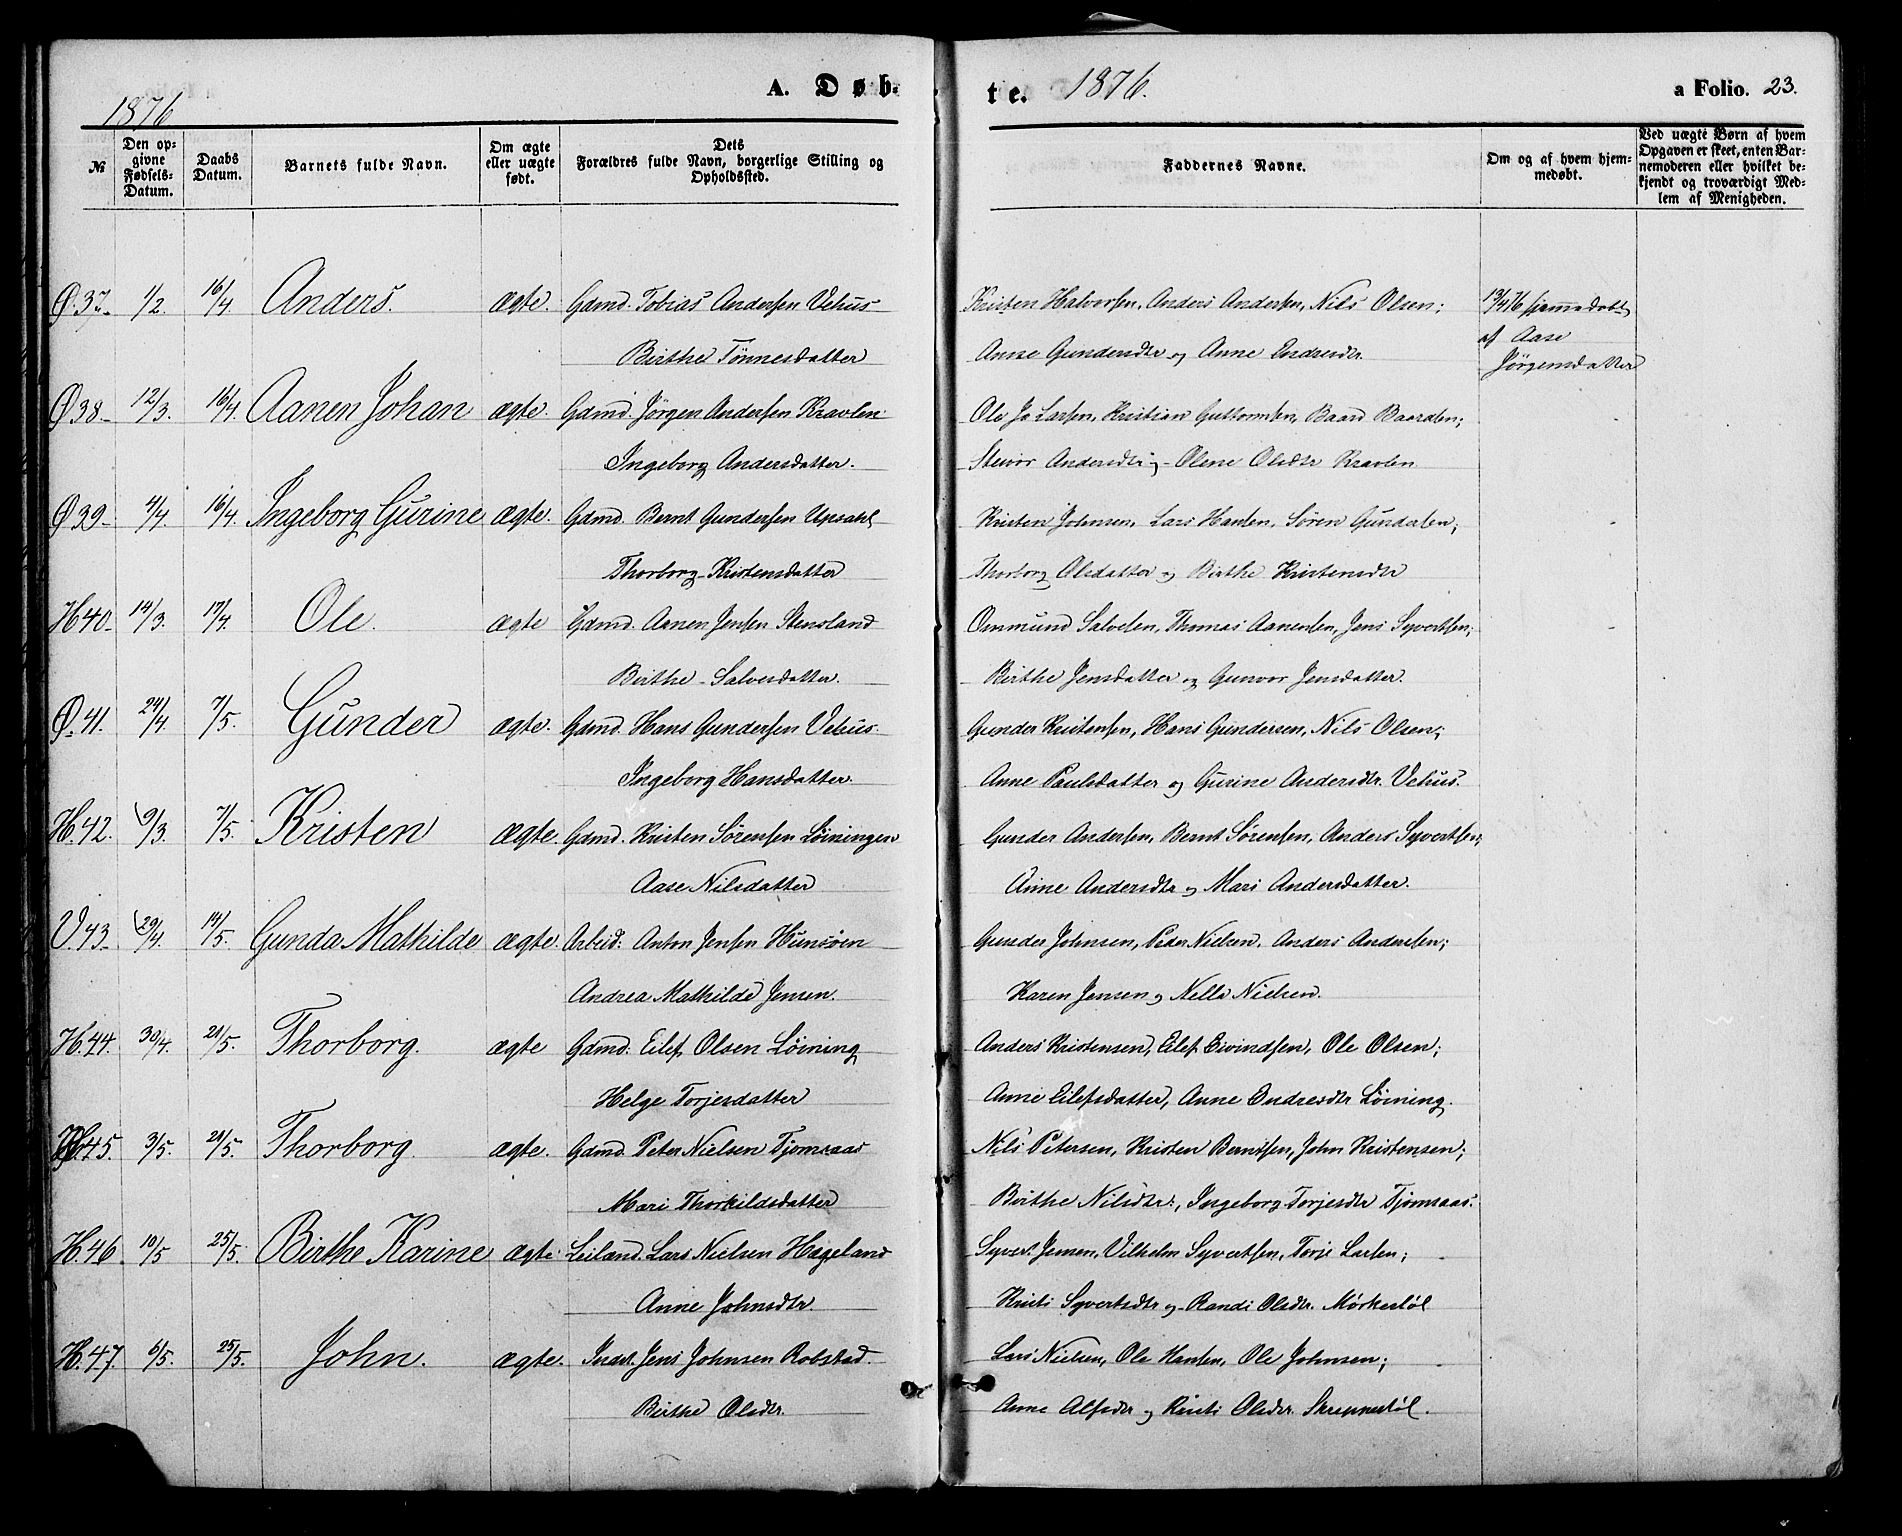 1876 A. Døb-
te. 1876. a Folio. 23.
№
Den op-
givne
Fødsels-
Datum.
Daabs
Datum.
Barnets fulde Navn.
Om ægte
eller uægte
født.
Dets
Forældres fulde Navn, borgerlige Stilling og
Opholdssted.
Faddernes Navne.
Om og af hvem hjem-
medøbt.
Ved uægte Børn af hvem
Opgaven er skeet, enten Bar-
nemoderen eller hvilket be-
kjendt og troværdigt Med-
lem af Menigheden.
Ø.37. 1/2. 16/4. Anders. ægte. Gdmd. Tobias Andersen Vehus Kristen Halvorsen, Anders Andersen, Nils Olsen; 13/4 76 hjemmedøbt
Birthe Tønnesdatter Anne Gundersdtr og Anne Endresdtr. af Aase
Jørgensdatter
Ø38. 12/3. 16/4. Aanen Johan ægte. Gdmd. Jørgen Andersen Kravlen Ole Jo Larsen, Kristian Guttormsen, Baard Baardsen;
Ingeborg Andersdatter. Steinor Andersdtr og Olene Olsdtr Kravlen
Ø39. 4/4. 16/4. Ingeborg Gurine ægte. Gdmd. Bernt Gundersen Upsahl Kristen Johnsen, Lars Hansen, Søren Gundersen;
Thorborg Kristensdatter Thorborg Olsdatter og Birthe Kristensdtr
H40. 14/3. 17/4. Ole. ægte Gdmd. Aanen Jensen Stensland Ommund Salvesen, Thomas Aanensen, Jens Syvertsen;
Birthe Salvesdatter. Birthe Jensdatter og Gunvor Jensdatter.
Ø.41. 24/4. 7/5. Gunder ægte. Gdmd. Hans Gundersen Vehus. Gunder Kristensen, Hans Gundersen, Nils Olsen;
Ingeborg Hansdatter. Anne Paulsdatter og Gurine Andersdtr. Vehus.
H.42. 9/3. 7/5. Kristen ægte. Gdmd. Kristen Sørensen Løiningen Gunder Andersen, Bernt Sørensen, Anders Syvertsen;
Aase Nilsdatter Anne Andersdtr og Mari Andersdatter.
V.43. 29/4. 14/5. Gunda Mathilde ægte. Arbeid. Anton Jensen Hunsøen Gunder Johnsen, Peder Nielsen, Anders Andersen;
Andrea Mathilde Jensen. Karen Jensen og Nella Nielsen.
H.44. 30/4. 21/5. Thorborg. ægte Gdmd. Eilef Olsen Løining Anders Kristensen, Eilef Eivindsen, Ole Olsen;
Helge Torjesdatter Anne Eilefsdatter, Anne Endresdtr Løining.
45. 3/5. 21/5. Thorborg. ægte. Gdmd. Peter Nielsen Tjomsaas Nils Petersen, Kristen Berntsen, John Kristensen;
Mari Thorkildsdatter Birthe Nilsdtr., Ingeborg Torjesdtr Tjomsaas.
H.46. 10/5 25/5. Birthe Karine ægte. Leiland. Lars Nielsen Hageland Syvert Jensen, Vilhelm Syvertsen, Torje Larsen;
Anne Johnsdtr. Kristi Syvertsdtr og Randi Olsdtr. Mørkestøl
H.47. 6/5. 25/5. John. ægte. Inds. Jens Johnsen Robstad. Lars Nielsen, Ole Hansen, Ole Johnsen;
Birthe Olsdtr. Anne Alfsdtr og Kristi Olsdtr. Skreppestøl.